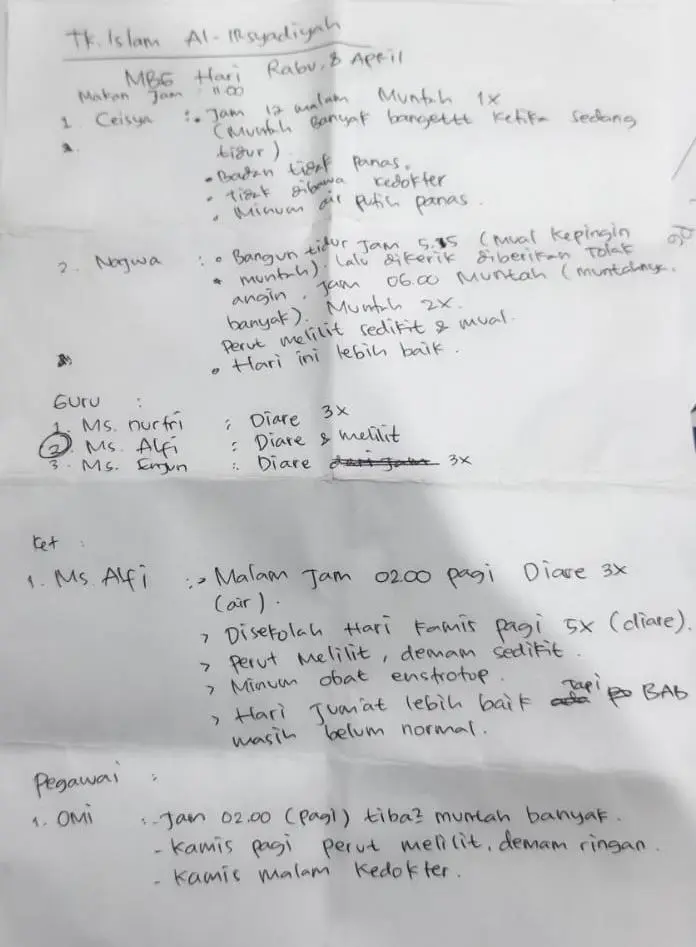 TK. Islam Al-IRsyadiyah
MBG Hari Rabu, 8 April
Makan Jam 11.00
1. Ceisya : • Jam 12 malam Muntah 1x
(Muntah Banyak bangettt Ketika sedang
tidur)
• Badan tidak panas.
• tidak dibawa kedokter
• Minum air putih panas.
2. Nagwa : • Bangun tidur Jam 5.15 (Mual kepingin
muntah). lalu dikerik diberikan Tolak
angin, Jam 06.00 Muntah (muntahnya
banyak). Muntah 2x.
Perut melilit sedikit & mual.
• Hari ini lebih baik.
Guru :
1. Ms. nurfri : Diare 3x
2. Ms. Alfi : Diare & melilit
3. Ms. : Diare dari jam 3x
Ket :
1. Ms. Alfi : > Malam Jam 02.00 pagi Diare 3x
(air).
> Disekolah Hari Kamis pagi 5x (diare).
> Perut Melilit, demam sedikit.
> Minum obat enstrotop.
> Hari Jum'at lebih baik ada Tapi po BAB
masih belum normal.
Pegawai :
1. OMi : - Jam 02.00 (pagi) tiba2 muntah banyak.
- Kamis pagi perut melilit, demam ringan.
- Kamis malam Kedokter.